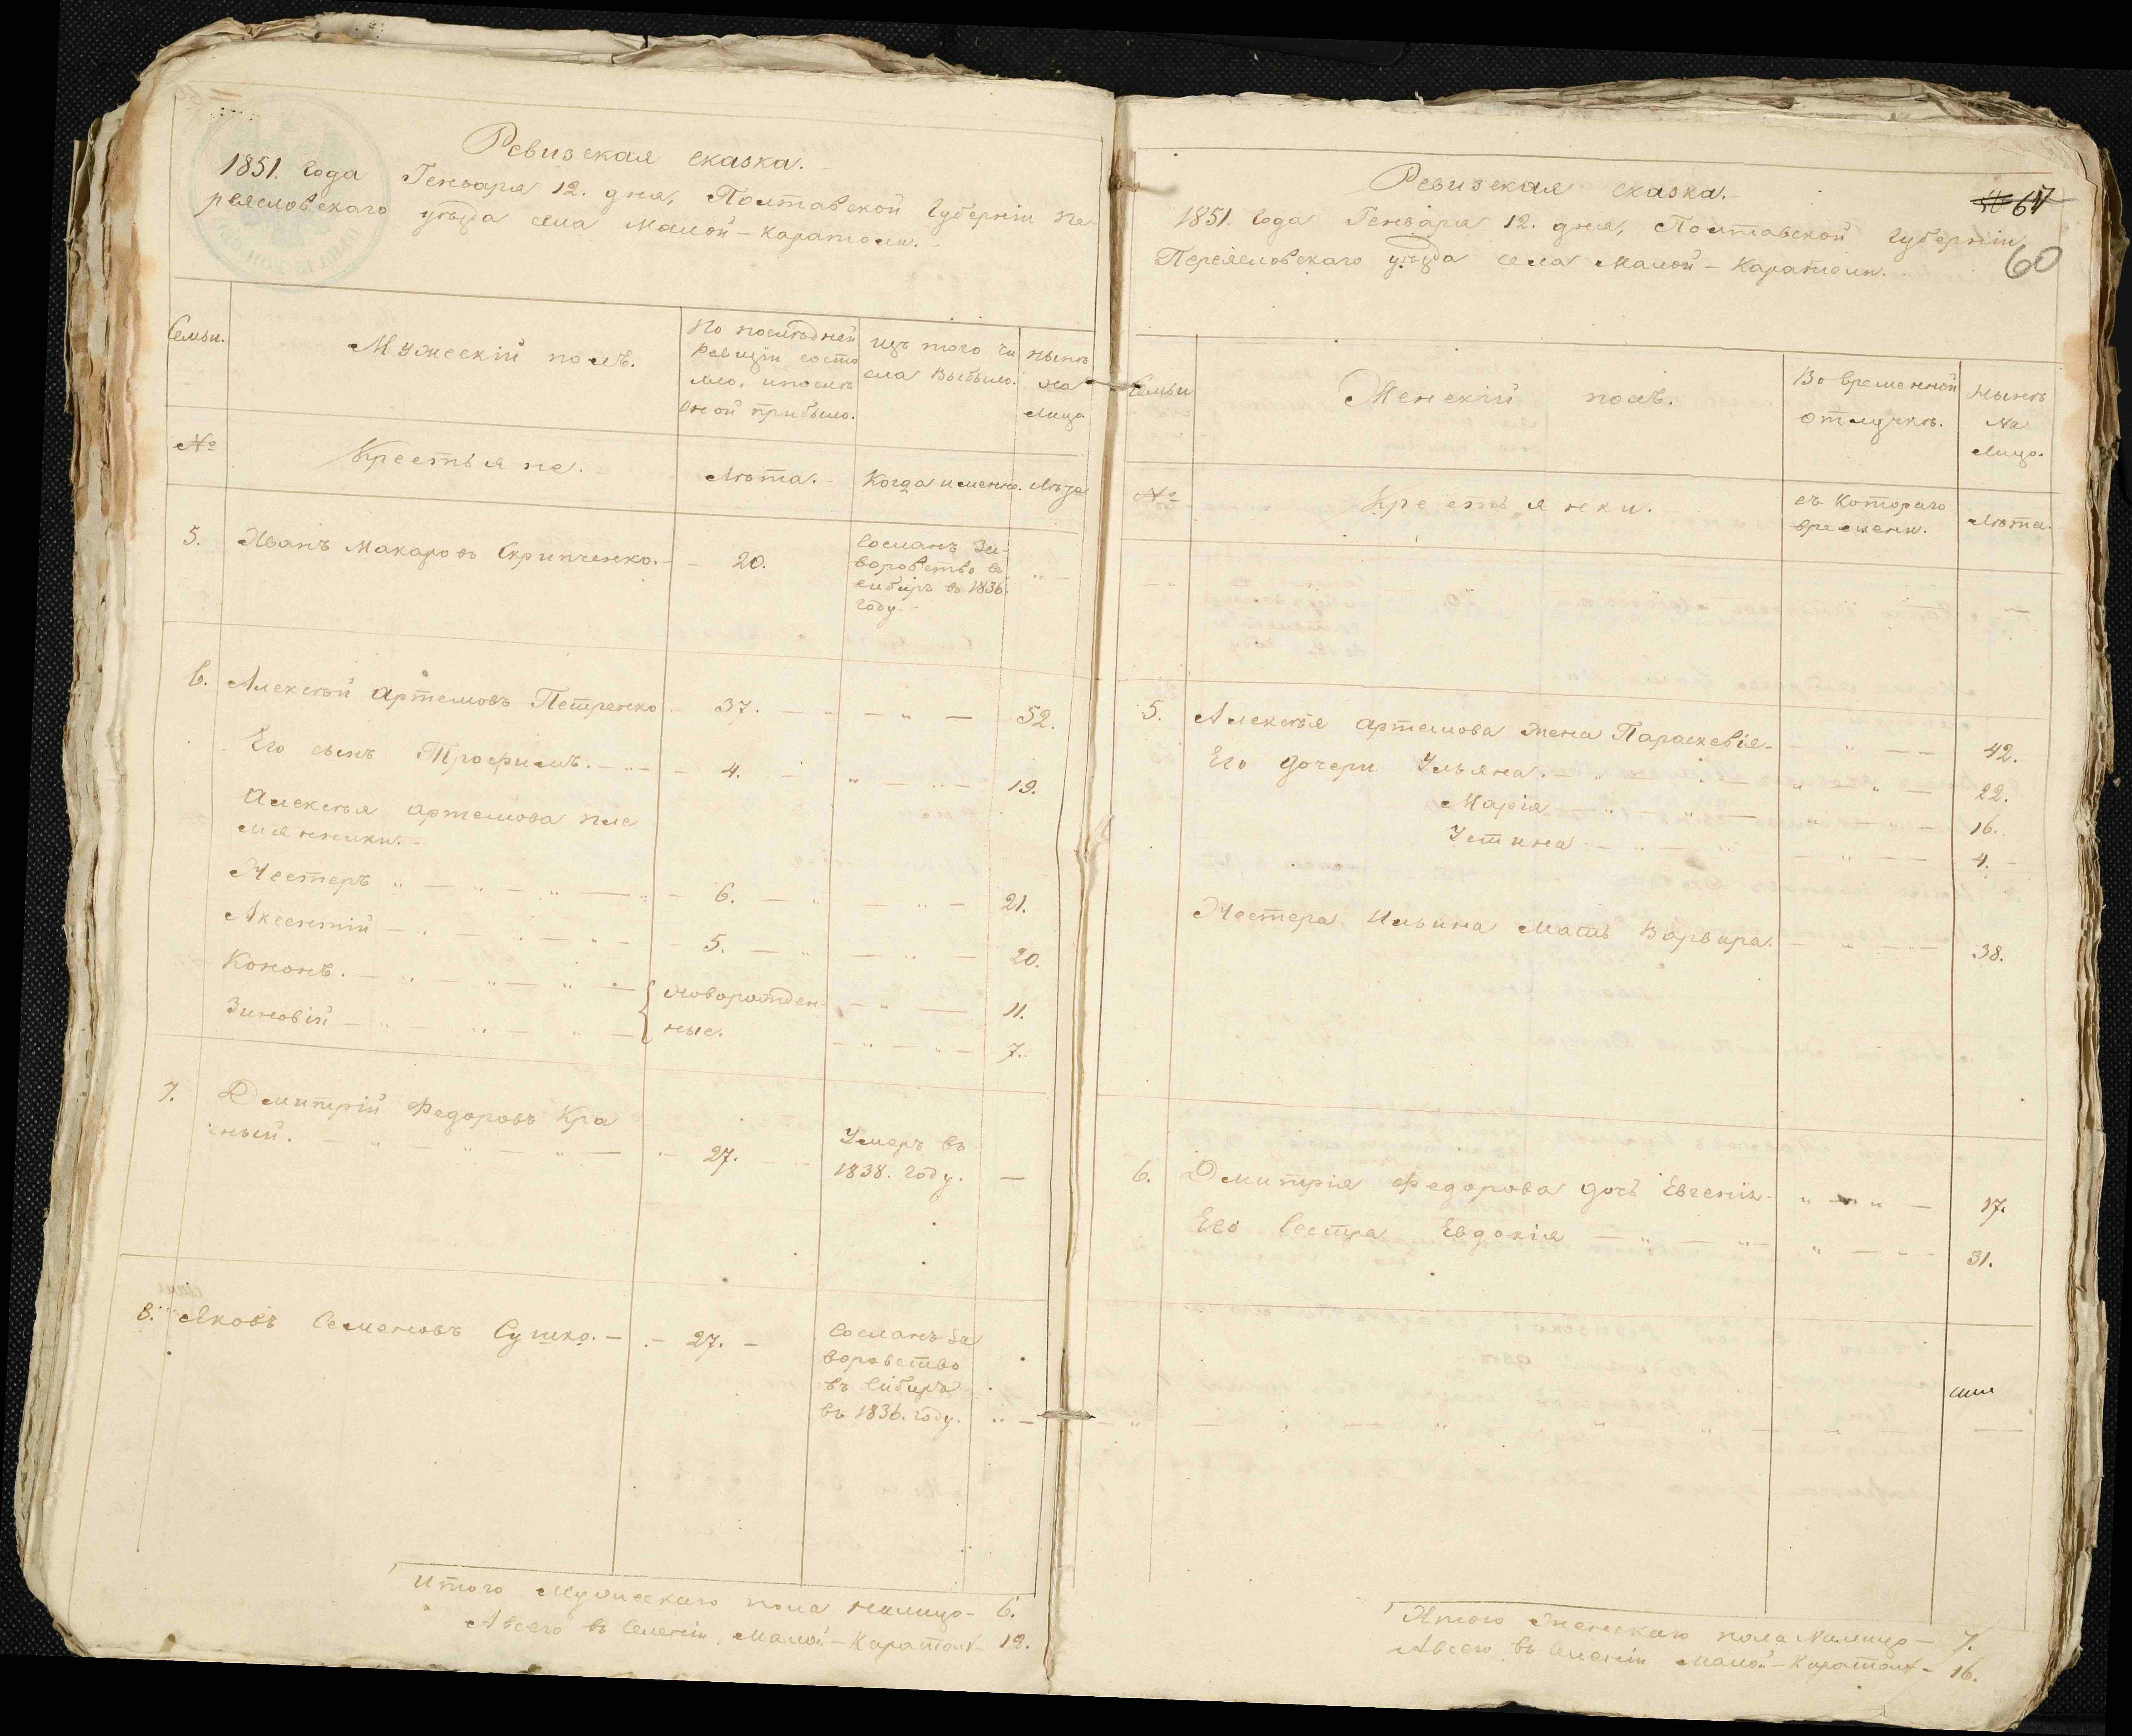 Ревизская сказка.
1851. Года Генваря 12. дня, Полтавской Губерніи Пе-
реясловскаго уѣзда села Малой-Каратоли.
Семьи.
Мужескій полъ.
По послѣдней
Ревизіи состо
яло, и послѣ
оной прибыло.
Изъ того чи
сла выбыло.
Нынѣ
на
лицо
№
Крестьяне.
Лѣта.
Когда именно.
Лѣта
5. Иванъ Макаровъ Скрипченко. - 20.
Сосланъ за
воровство въ
сибирь въ 1836.
году.
6. Алексѣй Артемовъ Петренко 37. 52.
Его сынъ Трофимъ. 4. 19.
Алексѣя Артемова пле
мянники.
Нестеръ 6. 21.
Аксентій 5. 20.
Кононъ. 11.
Зиновій 7.
новорожден-
ные.
7. Дмитрій Федоровъ Кра
сный. 27.
Умеръ въ
1838. году. —
8. Яковъ Семеновъ Сушко. 27.
Сосланъ за
воровство
въ Сибирь
въ 1836. году.
Итого Мужескаго пола налицо - 6.
А всего въ Селеніи Малой-Каратоли - 12.
67
60
Ревизская сказка.
1851. Года Генваря 12. дня, Полтавской Губерніи
Переясловскаго уѣзда села Малой-Каратоли.
Семьи
Женскій полъ.
Во временной
отлучкѣ.
Нынѣ
На
Лицо.
№
Крестьянки.
съ Котораго
времени.
Лѣта.
5. Алексѣя Артемова жена Параскевія 42.
Его дочери Ульяна. 22.
Марія 16.
Устина 4.
Нестера Ильина Мать Варвара. 38.
6. Дмитрія Федорова дочь Евгенія 17.
Его Сестра Евдокія 31.
Итого Женскаго пола Налицо - 7.
А всего въ Селеніи Малой-Каратоли - 16.